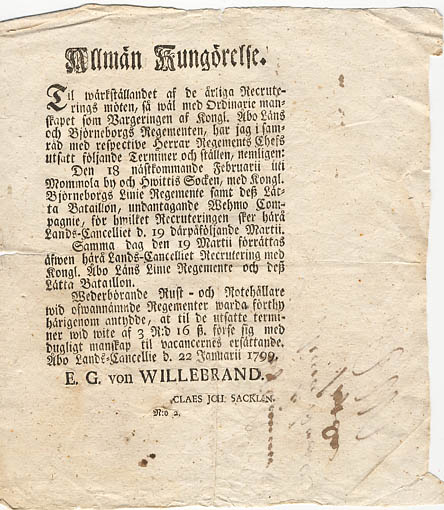 Allmän Kungörelse.
Til wärkställandet af de årliga Recrute-
rings möten, så wäl med Ordinarie man-
skapet som Vargeringen af Kongl. Åbo Läns
och Björneborgs Regementen, har jag i sam-
råd med respective Herrar Regements Chefs
utsatt följande Terminer och ställen, nemligen:
Den 18 nästkommande Februarii uti
Mommola by och Hwittis Socken, med Kongl.
Björneborgs Linie Regemente samt deß Lät-
ta Bataillon, undantagande Wehmo Com-
pagnie, för hwilket Recruteringen sker härå
Lands-Cancelliet d. 19 därpåföljande Martii.
Samma dag den 19 Martii förrättas
äfwen härå Lands-Cancelliet Recrutering med
Kongl. Åbo Läns Linie Regemente och deß
Lätta Bataillon.
Wederbörande Rust- och Rotehållare
wid ofwannämnde Regementer warda förthy
härigenom antydde, at til de utsatte termi-
ner wid wite af 3 R:d 16 ß. förse sig med
dugligt manskap til vacancernes ersättande.
Åbo Lands-Cancellie d. 22 Januarii 1799.
E. G. von WILLEBRAND.
CLAES JOH. SACKLÉN.
N:o 2.